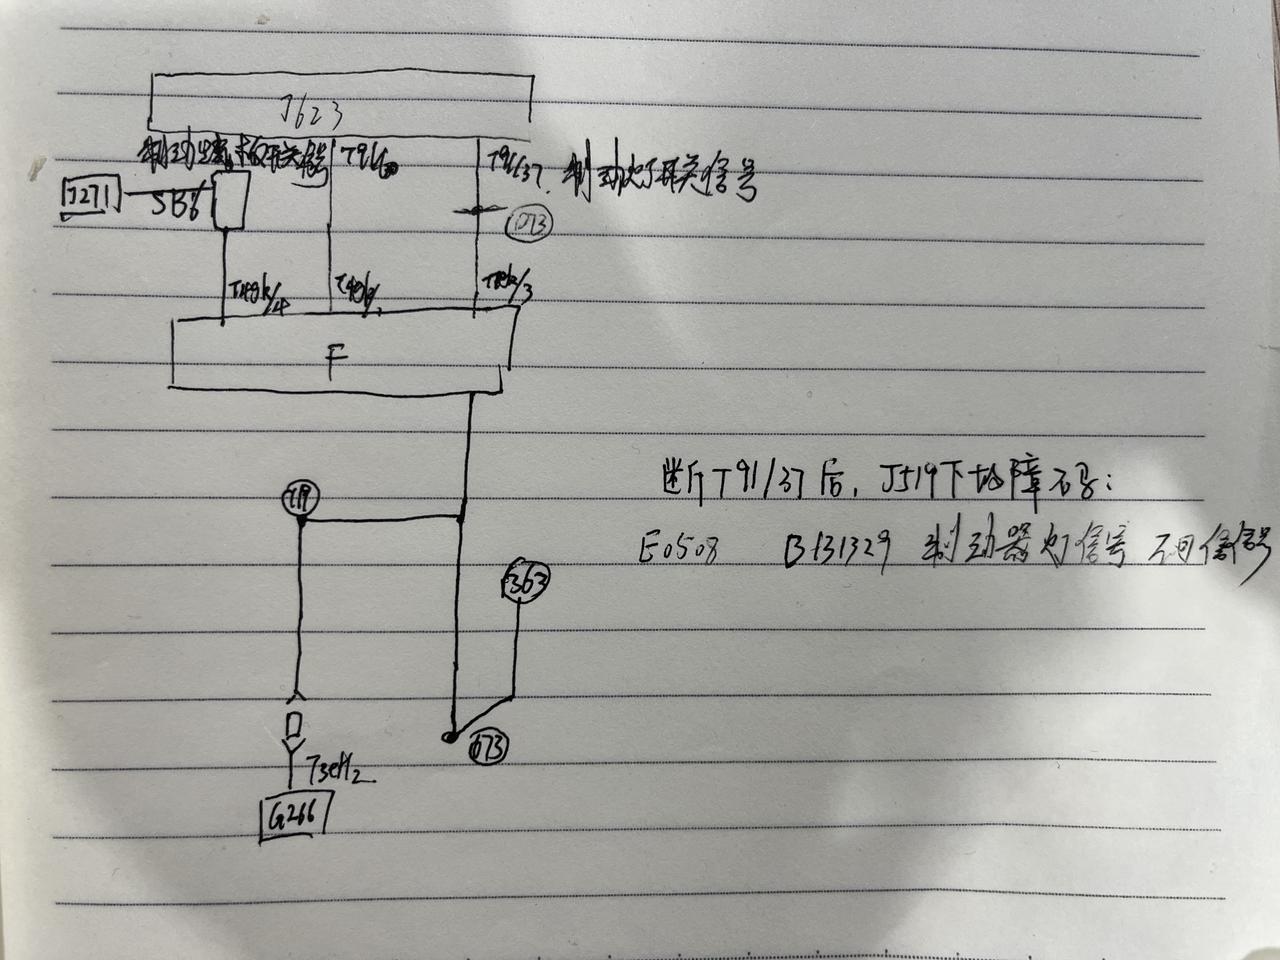 J623
制动踏板开关信号
T91/60
T91/37
制动灯开关信号
J271
SB6
T4gk/4
T4gk/1
T4gk/3
F
断T91/37后,J519下故障码:
E0508 B131329 制动器灯信号 不可信信号
719
363
673
T3eH2
G266